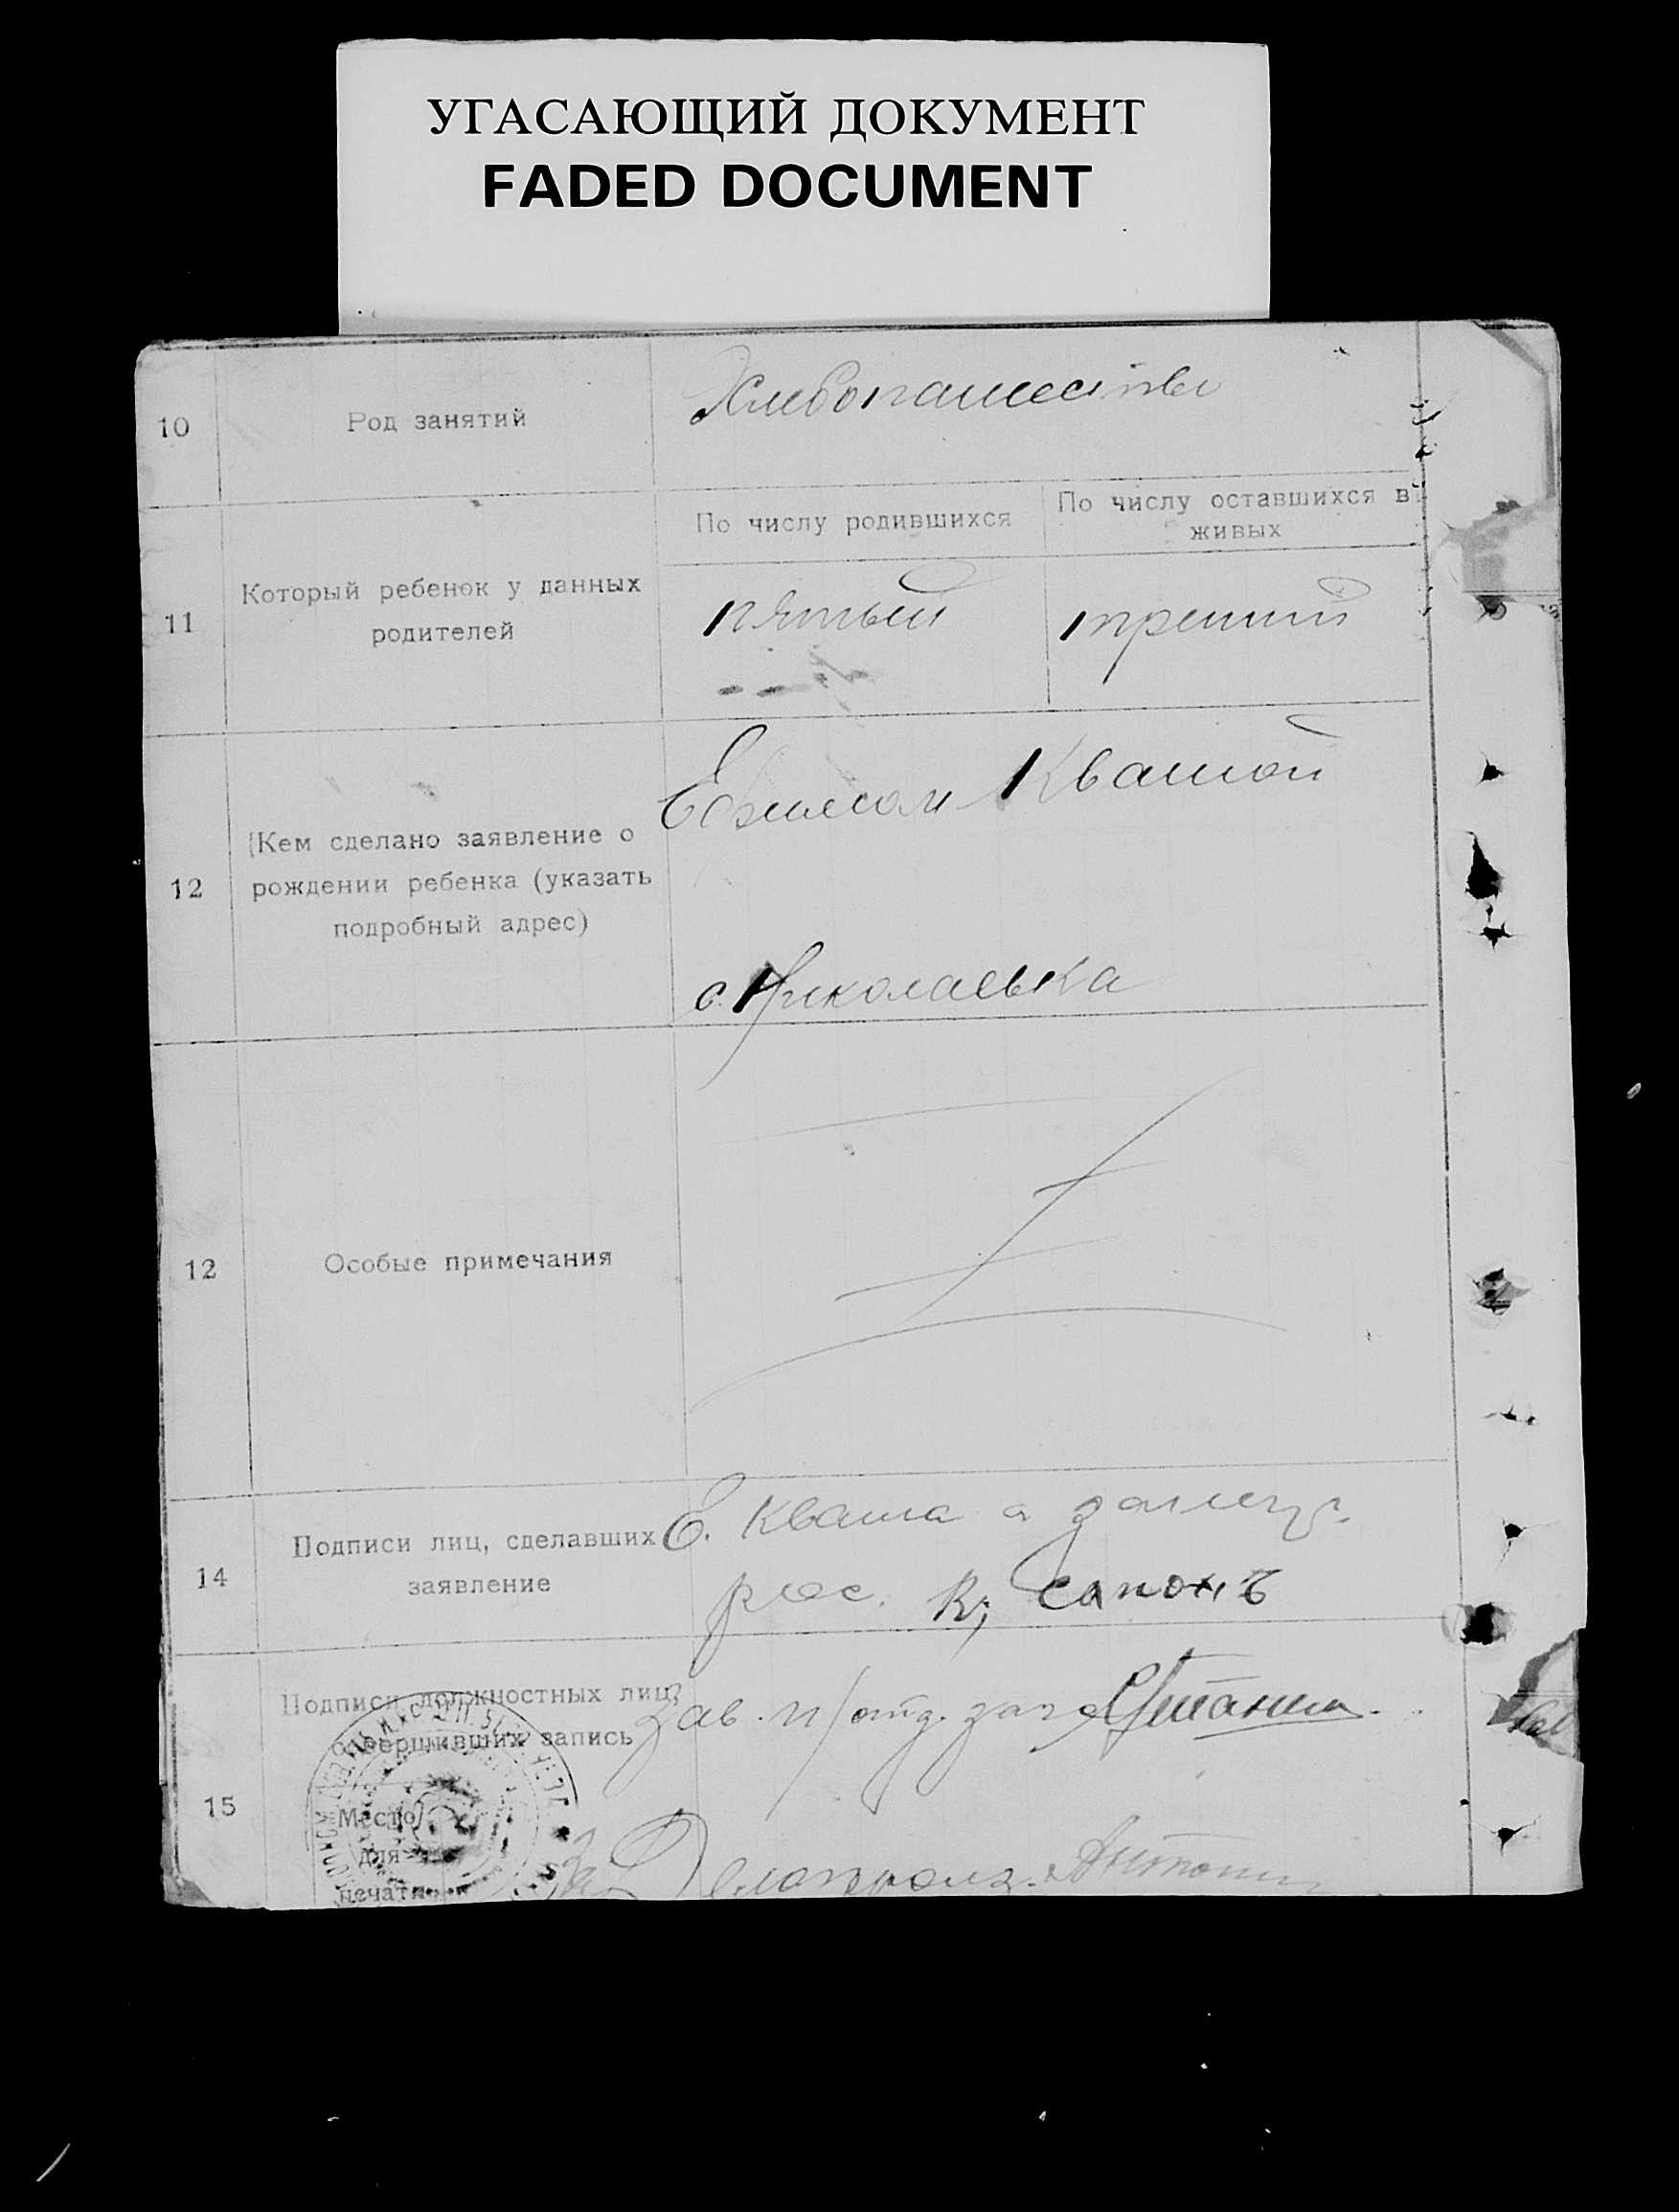 УГАСАЮЩИЙ ДОКУМЕНТ
FADED DOCUMENT
10
Род занятий
Хлебопашество
11
Который ребенок у данных
родителей
По числу родившихся
По числу оставшихся в
живых
пятый
третий
12
(Кем сделано заявление о
рождении ребенка (указать
подробный адрес)
Квашой
с. Николаевка
12
Особые примечания
14
Подписи лиц, сделавших
заявление
Е. Кваша а за
рос.
15
Подписи должностных лиц,
совершивших запись
Место
для
печати
Зав. п/отд. загс
За Делопроиз.